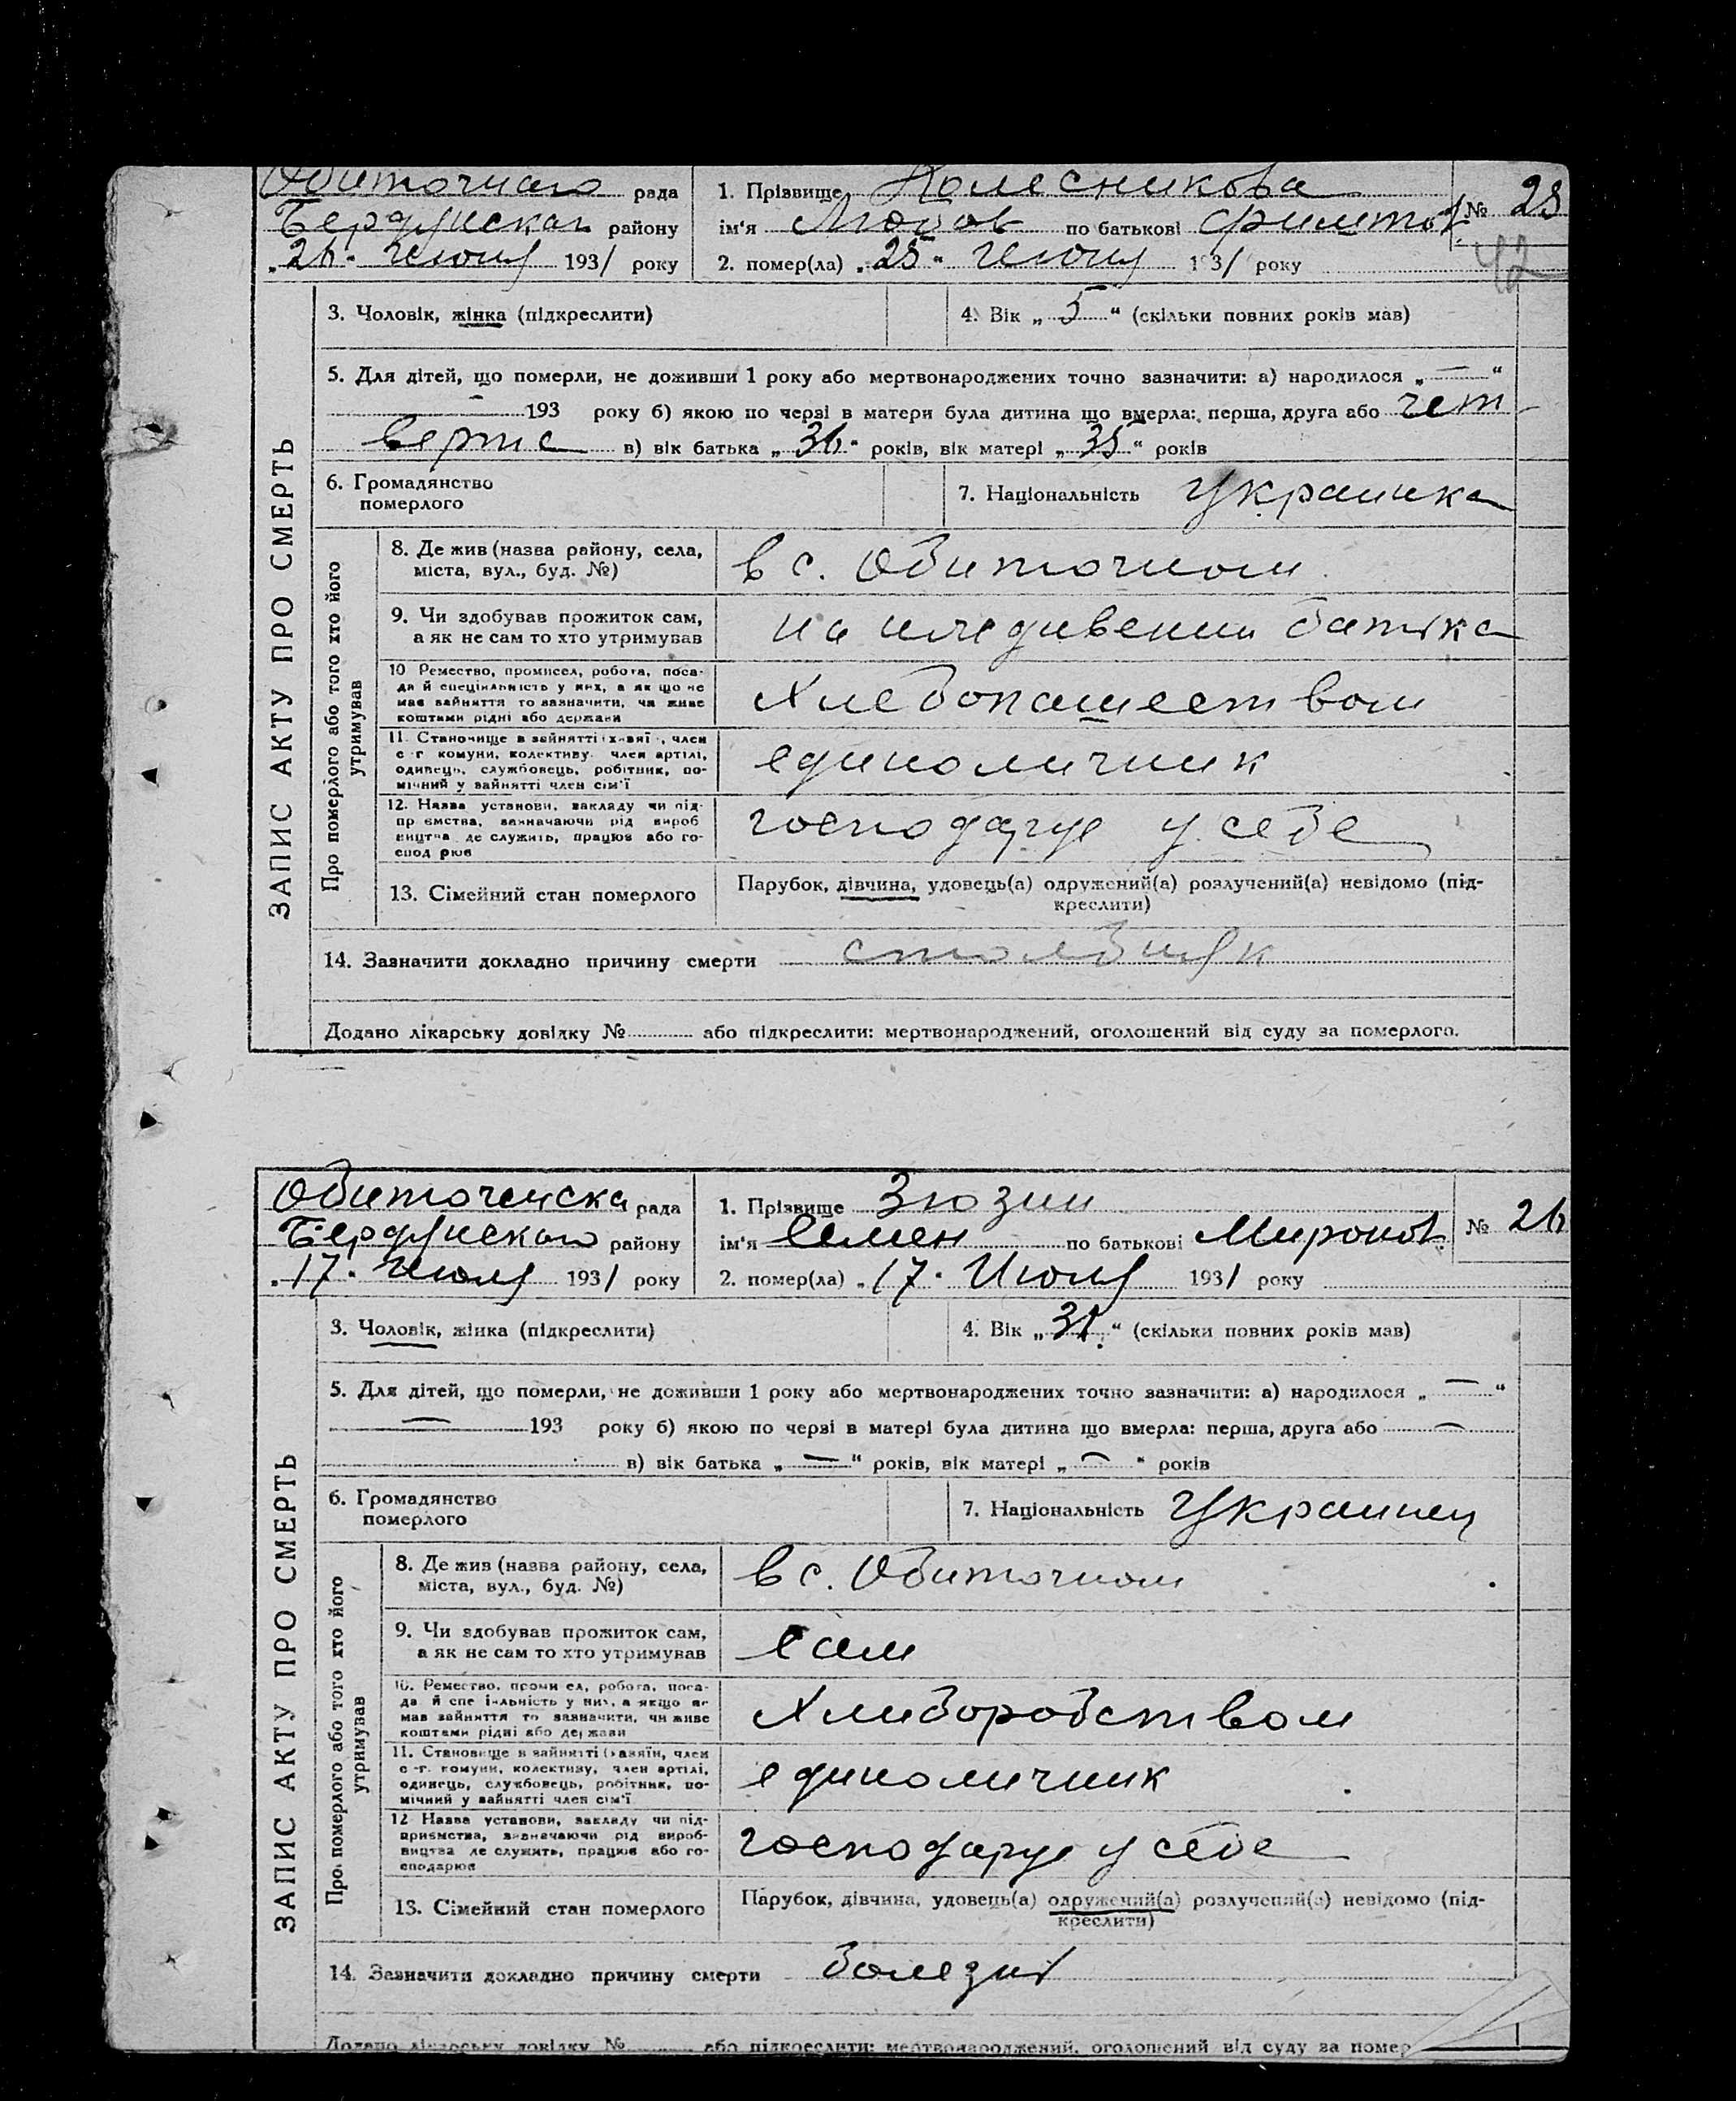 Обиточнаго рада
Бердянскаго району
„26“ Июня 1931 року
1. Прізвище Колесникова
ім'я Любов по батькові Филитов.
№ 25
2. помер(ла) „25“ Июня 193/ року
42
3. Чоловік, жінка (підкреслити)
4. Вік „5“ (скільки повних років мав)
5. Для дітей, що померли, не доживши 1 року або мертвонароджених точно зазначити: а) народилося „—“
— 193 року б) якою по черзі в матери була дитина що вмерла: перша, друга або чет
верта в) вік батька „36“ років, вік матері „35“ років
6. Громадянство
померлого
7. Національність Украинка
ЗАПИС АКТУ ПРО СМЕРТЬ
Про померлого або того хто його
утримував
8. Де жив (назва району, села,
міста, вул., буд. №)
в с. Обиточном
9. Чи здобував прожиток сам,
а як не сам то хто утримував
на иждивении батька
10 Ремество, промисел, робота, поса-
да й спеціальність у них, а як що не
мав зайняття то зазначити, чи живе
коштами рідні або держави
Хлебопашеством
11. Становище в зайнятті (хазяїн, член
с.-г. комуни, колективу, член артілі,
одинець, службовець, робітник, по-
мічний у зайнятті член сім'ї
единоличник
12. Назва установи, закладу чи під-
приємства, зазначаючи рід вироб
ництва де служить, працює або го-
сподарює
господарує у себе
13. Сімейний стан померлого
Парубок, дівчина, удовець(а) одружений(а) розлучений(а) невідомо (під-
креслити)
14. Зазначити докладно причину смерти столбняк
Додано лікарську довідку № або підкреслити: мертвонароджений, оголошений від суду за померлого.
Обиточенска рада
Бердянскаго району
„17“ Июля 1931 року
1. Прізвище Зюзин
ім'я Семен по батькові Миронов.
№ 26
2. помер(ла) „17“ Июля 1931 року
3. Чоловік, жінка (підкреслити)
4. Вік „31“ (скільки повних років мав)
5. Для дітей, що померли, не доживши 1 року або мертвонароджених точно зазначити: а) народилося „—“
— 193 року б) якою по черзі в матері була дитина що вмерла: перша, друга або —
в) вік батька „—“ років, вік матері „—“ років
6. Громадянство
померлого
7. Національність Украинец
ЗАПИС АКТУ ПРО СМЕРТЬ
Про померлого або того хто його
утримував
8. Де жив (назва району, села,
міста, вул., буд. №)
в с. Обиточном
9. Чи здобував прожиток сам,
а як не сам то хто утримував
сам
10. Ремество, промисел, робота, поса-
да й спеціальність у них, а якщо не
мав зайняття то зазначити, чи живе
коштами рідні або держави
Хлиборобством
11. Становище в зайнятті (хазяїн, член
с.-г. комуни, колективу, член артілі,
одинець, службовець, робітник, по-
мічний у зайнятті член сім'ї
единоличник
12 Назва установи, закладу чи під-
приємства, зазначаючи рід вироб-
ництва де служить, працює або го-
сподарює
господарує у себе
13. Сімейний стан померлого
Парубок, дівчина, удовець(а) одружений(а) розлучений(а) невідомо (під-
креслити)
14. Зазначити докладно причину смерти болезнь
Додано лікарську довідку № або підкреслити: мертвонароджений, оголошений від суду за помер